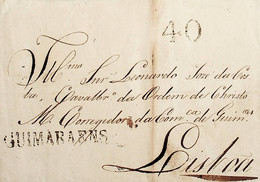 40
Illmo Snr Leonardo Jose da Cos
ta, Cavalhro da Ordem de Christo
M. Corregedor da Comca de Guimes
GUIMARAENS
Lisboa